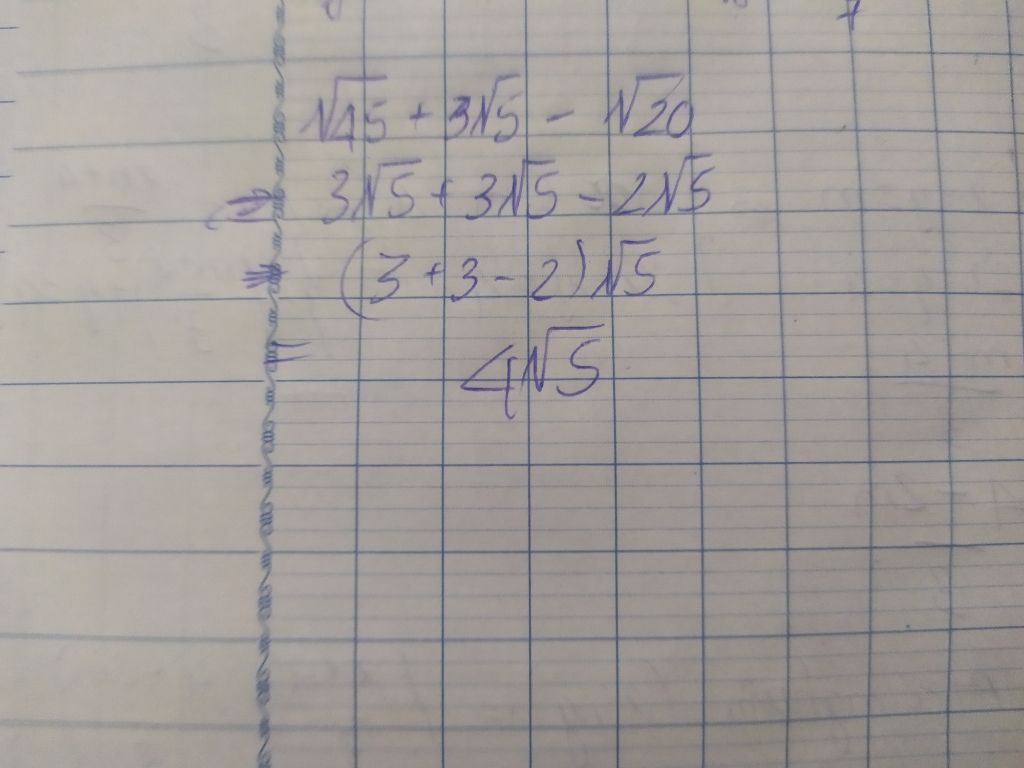 √45 + 3√5 - √20
=> 3√5 + 3√5 - 2√5
=> (3 + 3 - 2)√5
= 4√5